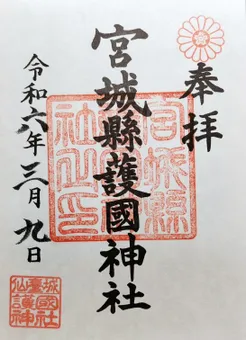 奉拝
宮城縣護國神社
宮城縣護國神社之印
令和六年三月九日
仙臺城護國神社